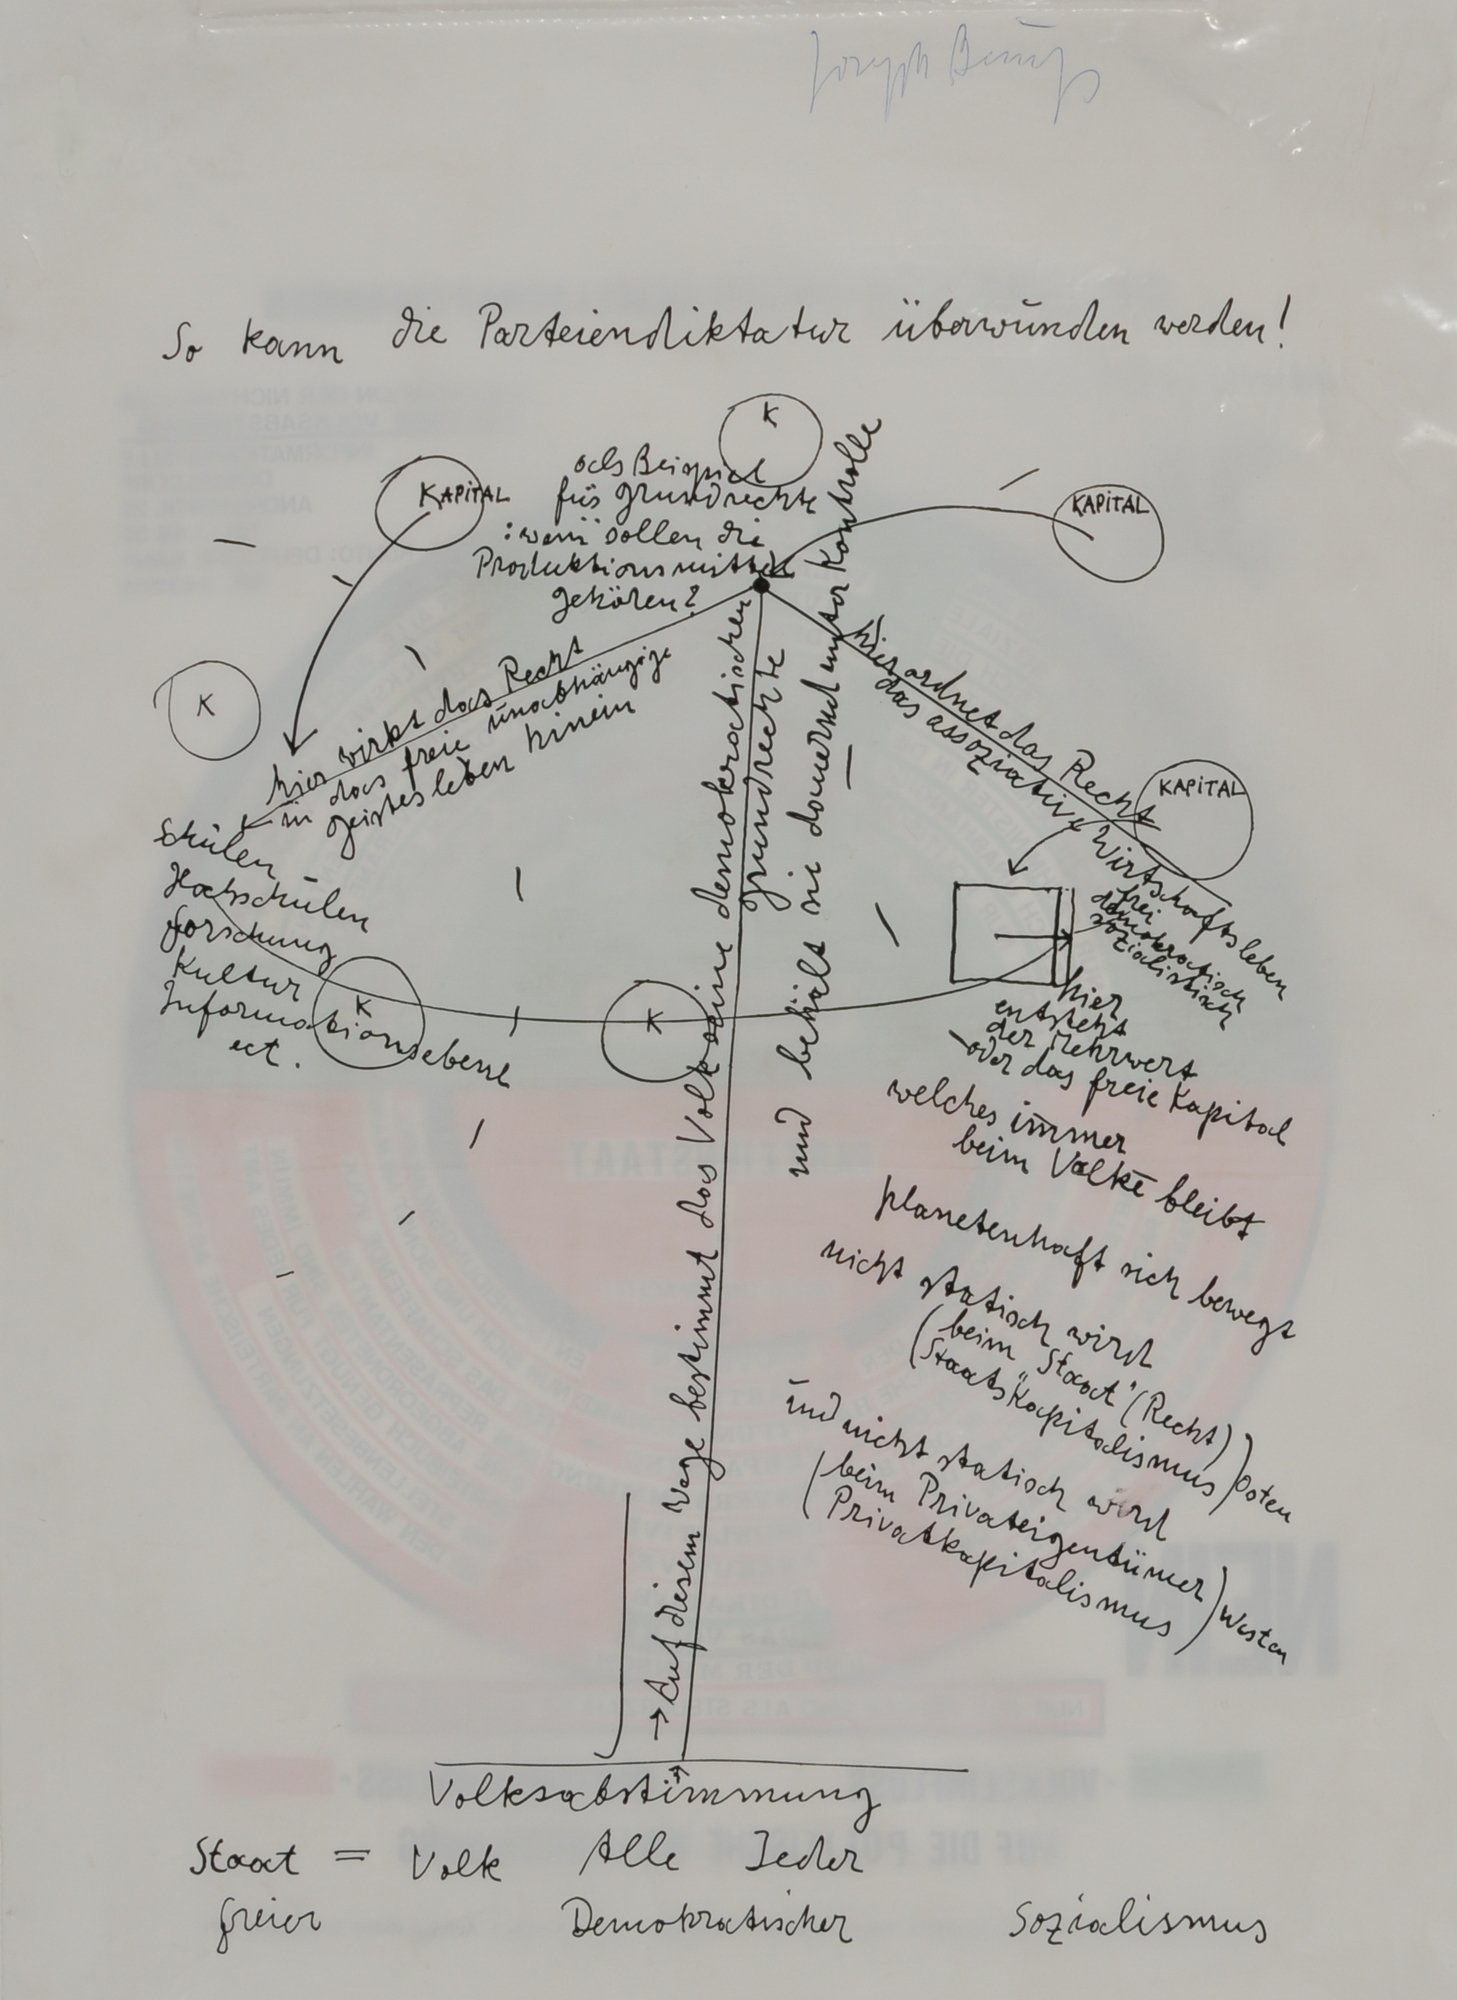 Joseph Beuys
So kann die Parteiendiktatur überwunden werden!
K
KAPITAL
KAPITAL
K
KAPITAL
K
K
als Beispiel
für Grundrechte
: wem sollen die
Produktionsmittel
gehören?
hier wirkt das Recht
in das freie unabhängige
Geistesleben hinein
Schulen
Hochschulen
Forschung
Kultur
Informationsebene
ect.
→ Auf diesem Wege bestimmt das Volk seine demokratischen
Grundrechte
und behält sie dauernd unter Kontrolle
hier ordnet das Recht
das assoziative Wirtschaftsleben
frei
demokratisch
sozialistisch
hier
entsteht
der Mehrwert
oder das freie Kapital
welches immer
beim Volke bleibt
planetenhaft sich bewegt
nicht statisch wird
(beim „Staat" (Recht)
(Staatskapitalismus) Osten
und nicht statisch wird
(beim Privateigentümer
Privatkapitalismus) Westen
Volksabstimmung
Staat = Volk Alle Jeder
freier Demokratischer Sozialismus